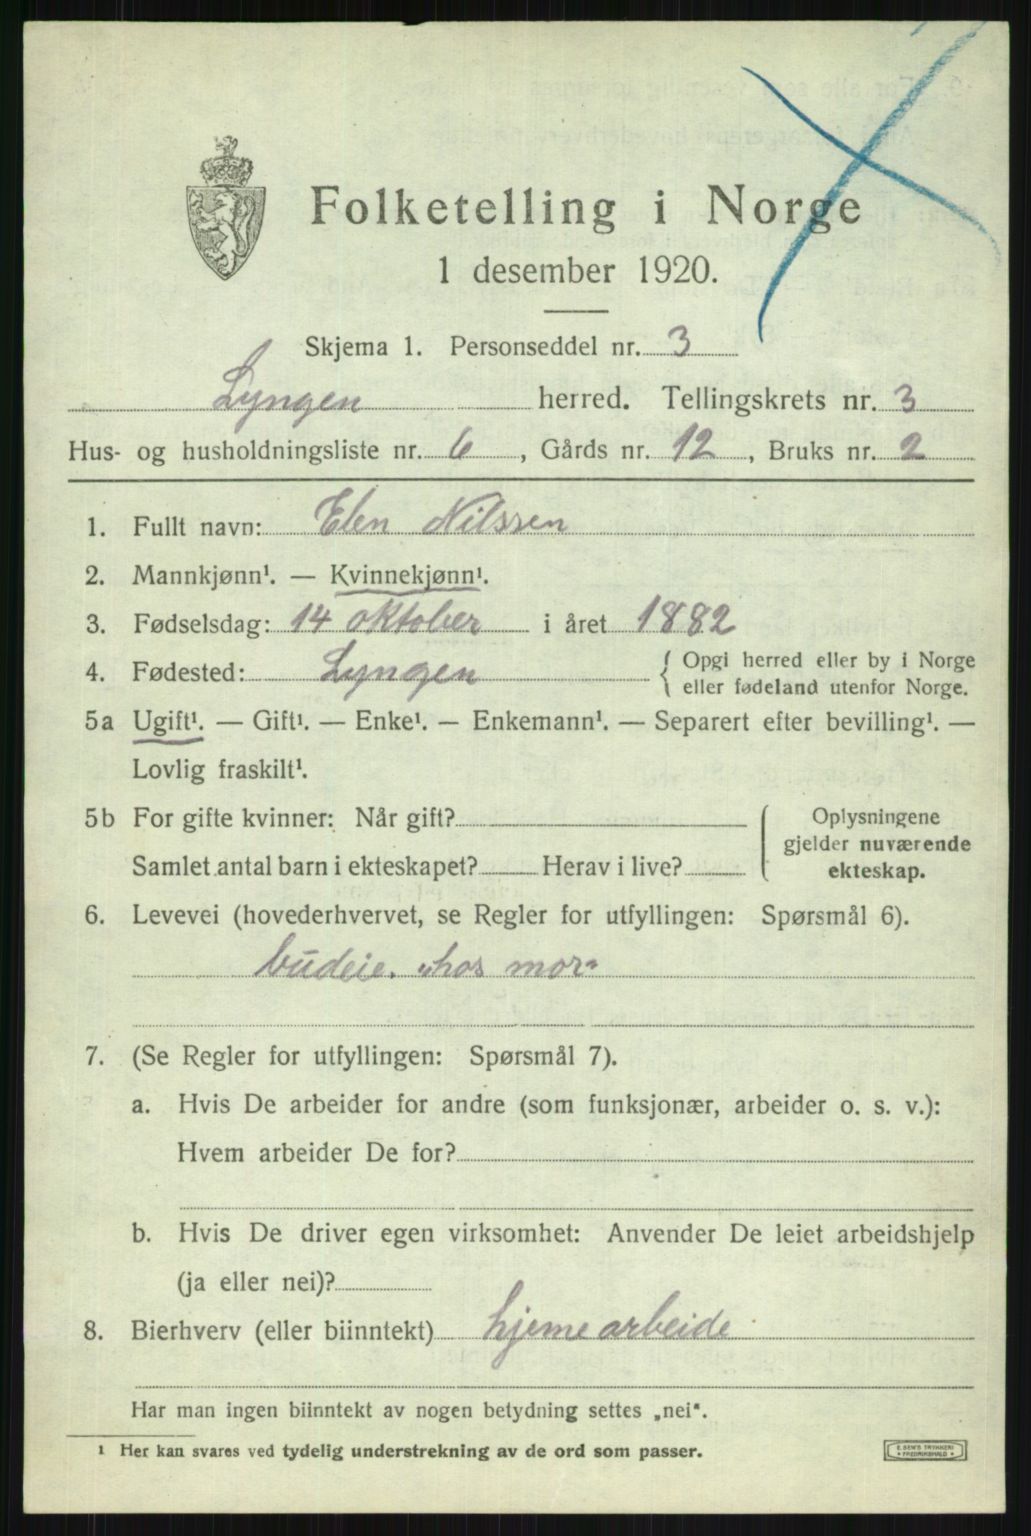 Folketelling i Norge
1 desember 1920.
Skjema 1. Personseddel nr. 3
Lyngen herred. Tellingskrets nr. 3
Hus- og husholdningsliste nr. 6, Gårds nr. 12, Bruks nr. 2
1. Fullt navn: Elen Nilssen
2. Mannkjønn¹. — Kvinnekjønn¹.
3. Fødselsdag: 14 oktober i året 1882
4. Fødested: Lyngen { Opgi herred eller by i Norge
eller fødeland utenfor Norge.
5a Ugift¹. — Gift¹. — Enke¹. — Enkemann¹. — Separert efter bevilling¹. —
Lovlig fraskilt¹.
5b For gifte kvinner: Når gift? { Oplysningene
gjelder nuværende
Samlet antal barn i ekteskapet? Herav i live? ekteskap.
6. Levevei (hovederhvervet, se Regler for utfyllingen: Spørsmål 6).
budeie. „hos mor"
7. (Se Regler for utfyllingen: Spørsmål 7).
a. Hvis De arbeider for andre (som funksjonær, arbeider o. s. v.):
Hvem arbeider De for?
b. Hvis De driver egen virksomhet: Anvender De leiet arbeidshjelp
(ja eller nei)?
8. Bierhverv (eller biinntekt) hjemearbeide
Har man ingen biinntekt av nogen betydning settes „nei".
¹ Her kan svares ved tydelig understrekning av de ord som passer.